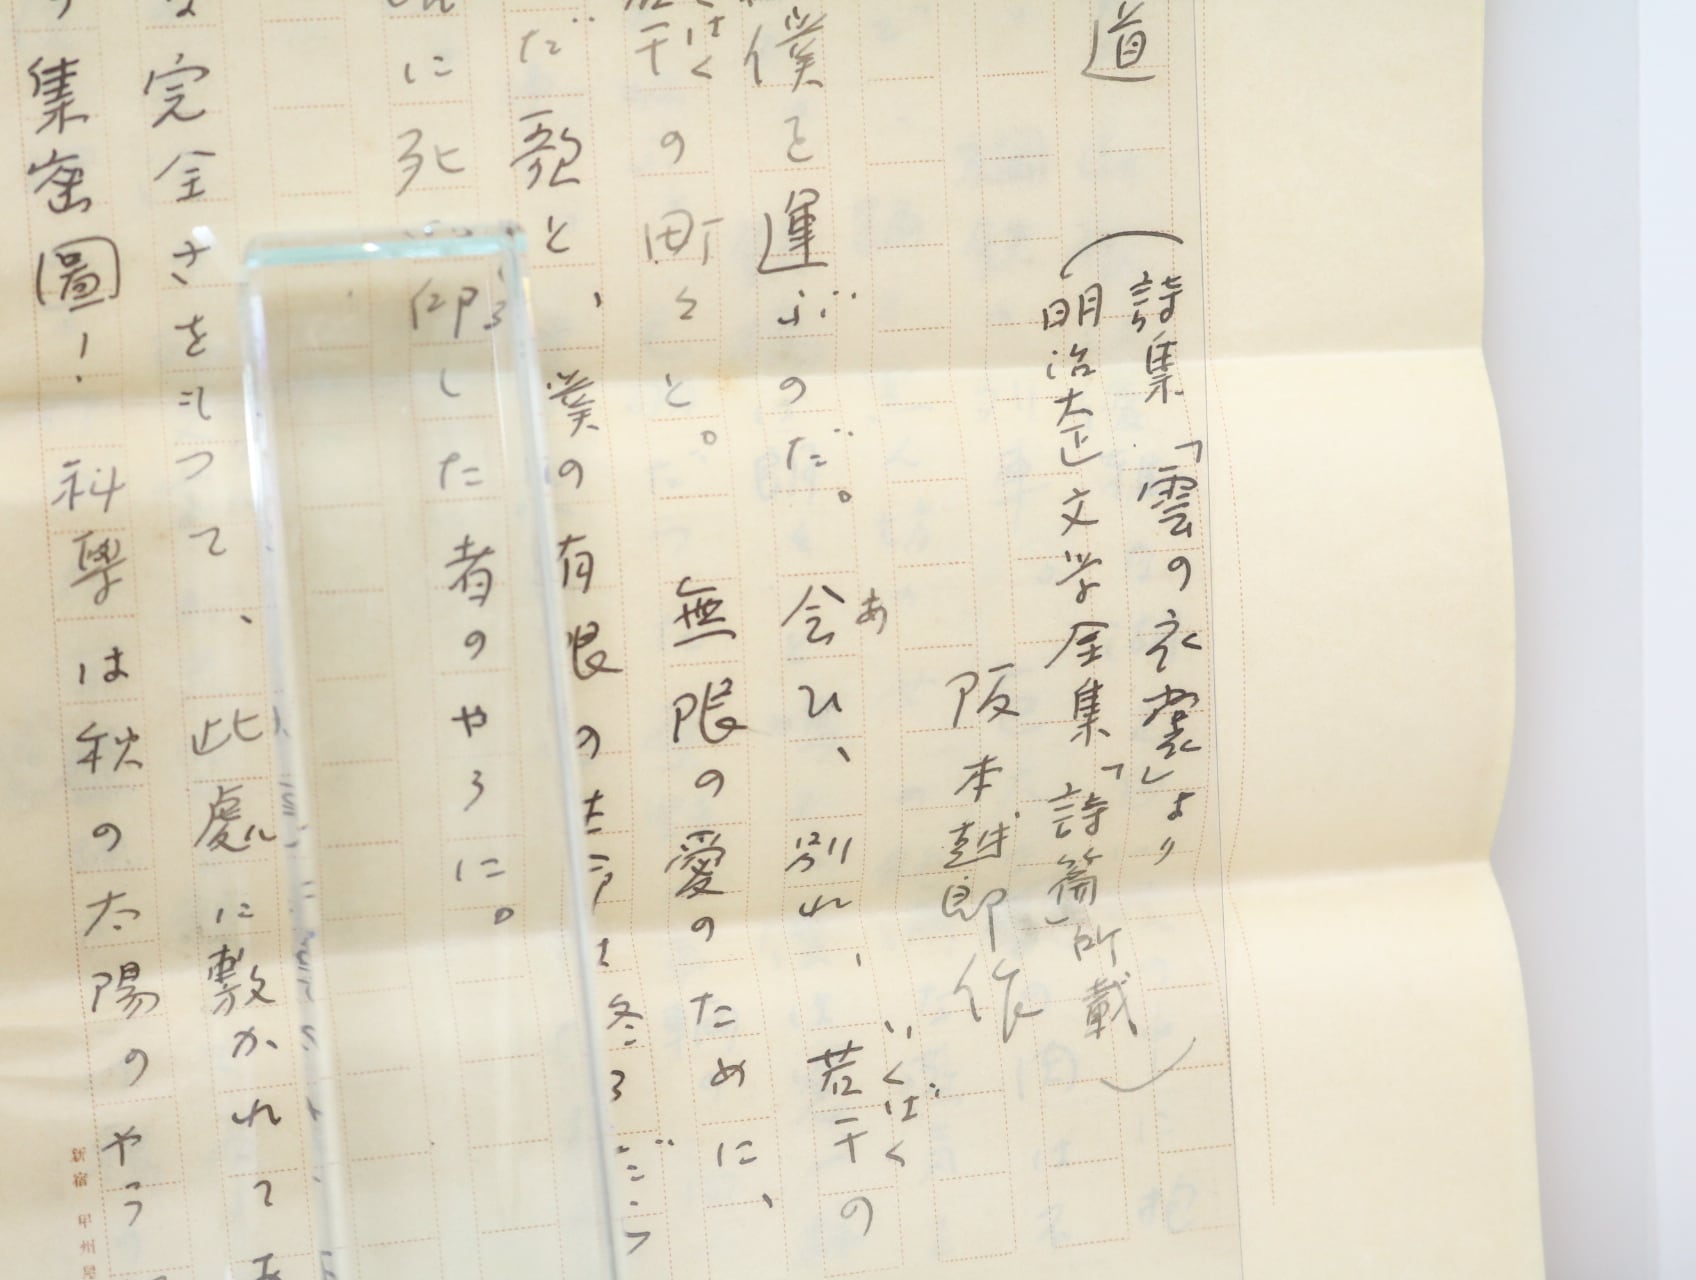 道
（詩集「雲の衣裳」より
明治大正文学全集「詩篇」所載）
阪本越郎作
僕を運ぶのだ。 会ひ、別れ、若干の
あ
いくばく
干の町々と。 無限の愛のために、
ばく
だ歌と、僕の有限の
に死 仰した者のやうに。
完全さをもつて、此處に敷かれて
集窗圖！ 科學は秋の太陽のやう
新宿 甲州屋